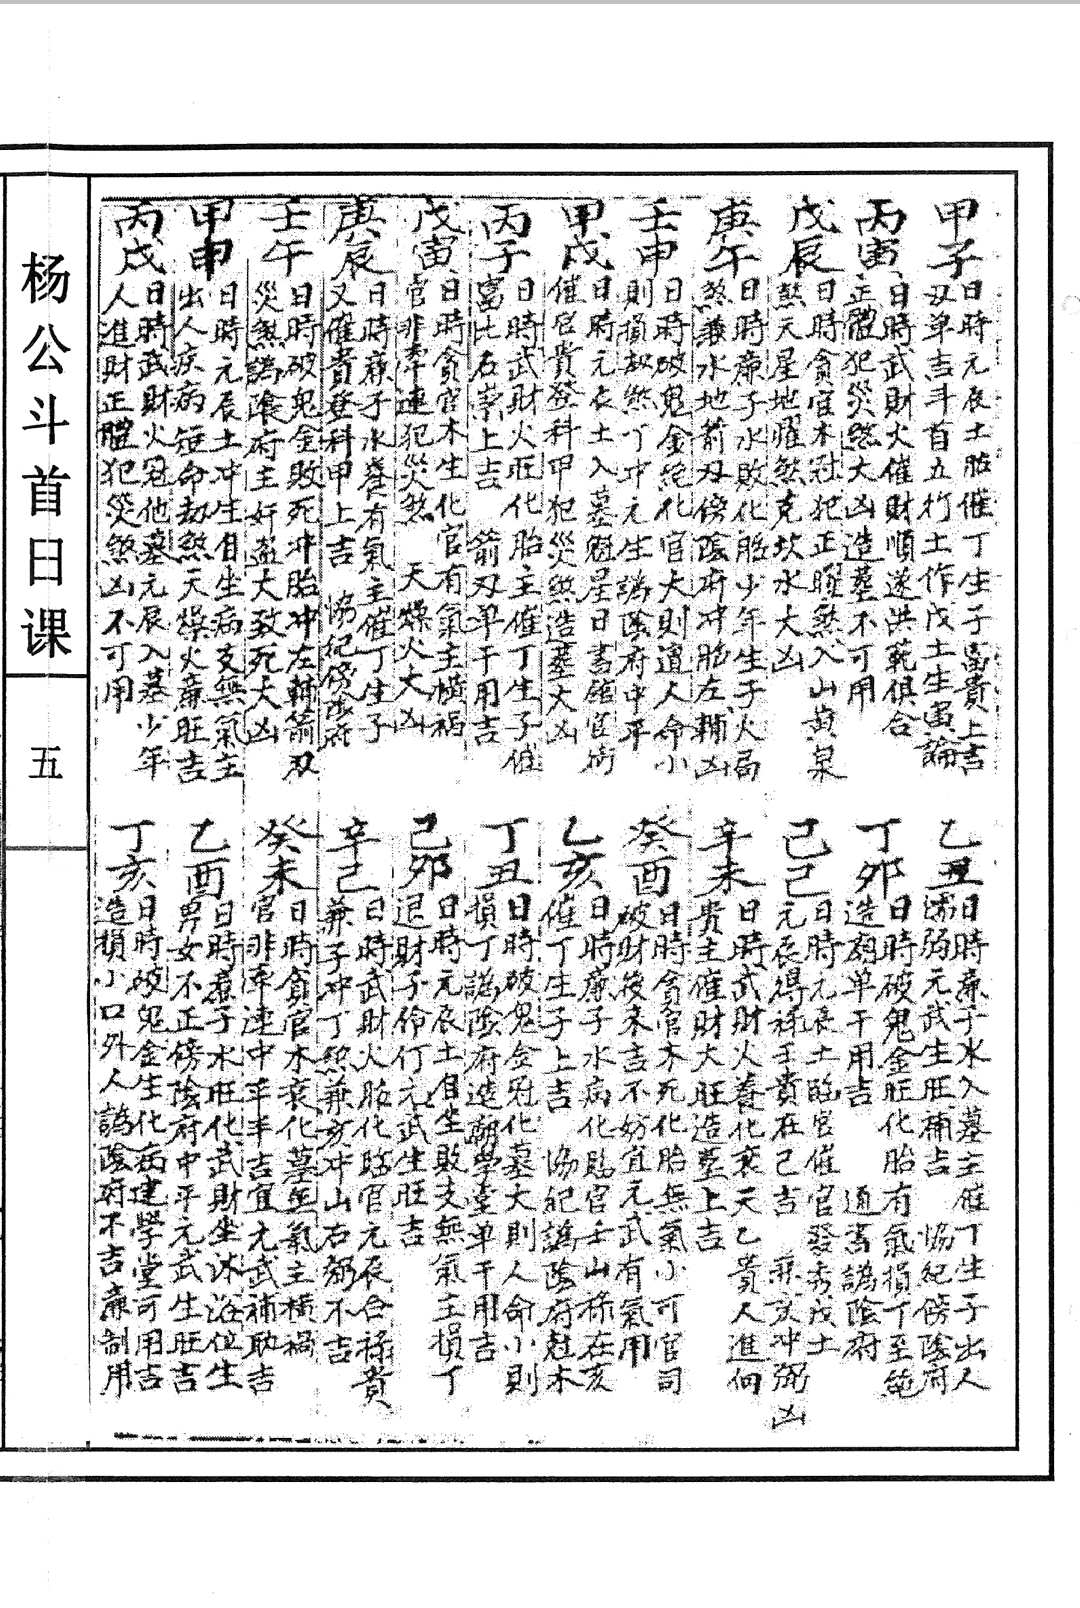 甲子
日時元辰土胎催丁生子富貴上吉
丑单吉斗首五行土作戊土生寅論
丙寅
日時武財火催財順遂洪範俱合
正體犯災煞大凶造墓不可用
戊辰
日時貪官木冠犯正曜煞入山黃泉
煞天星地曜煞克坎水大凶
庚午
日時亷子水敗化胎少年生子火局
煞兼水地箭刃傍陰府冲胎左輔凶
壬申
日時破鬼金絕化官大則遭人命小
則損 煞丁冲元生謫陰府中平
甲戌
日時元辰土入墓魁星日書館官衙
催官貴登科甲犯災煞造墓大凶
丙子
日時武財火旺化胎主催丁生子催
富比石崇上吉 箭刃单干用吉
戊寅
日時貪官木生化官有氣主橫禍
官非牽連犯災煞 天燥火大凶
庚辰
日時亷子水養有氣主催丁生子
又催貴登科甲上吉 協紀傍陰府
壬午
日時破鬼金敗死冲胎冲左輔箭刃
災煞謫陰府主奸盗大致死大凶
甲申
日時元辰土冲生自生病支無氣主
出人疾病短命劫煞天燥火亷旺吉
丙戌
日時武財火冠他墓元辰入墓少年
人進財正體犯災煞凶不可用
乙丑
日時亷子水入墓主催丁生子出人
濡弱元武生旺補吉 協紀傍陰府
丁卯
日時破鬼金旺化胎有氣損丁至絕
造廟单干用吉 通書謫陰府
己巳
日時元辰土臨官催官發秀戊土
元辰得祿壬貴在巳吉 兼亥冲弼凶
辛未
日時武財火養化衰天乙貴人進何
貴主催財大旺造塟上吉
癸酉
日時貪官木死化胎無氣小可官司
破財後来吉不妨宜元武有氣用
乙亥
日時亷子水病化臨官壬山祿在亥
催丁生子上吉 協紀謫陰府尅木
丁丑
日時破鬼金冠化墓大則人命小則
損丁謫陰府造廟學堂单干用吉
己卯
日時元辰土自坐敗支無氣主損丁
退財子伶仃元武生旺吉
辛巳
日時武財火胎化臨官元辰合祿貴
兼子冲丁煞兼亥冲山右弼不吉
癸未
日時貪官木衰化墓無氣主橫禍
官非牽連中平半吉宜元武補助吉
乙酉
日時亷子水旺化武財坐沐浴位生
男女不正傍陰府中平元武生旺吉
丁亥
日時破鬼金生化病建學堂可用吉
造損小口外人謫陰府不吉亷制用
杨公斗首日课
五